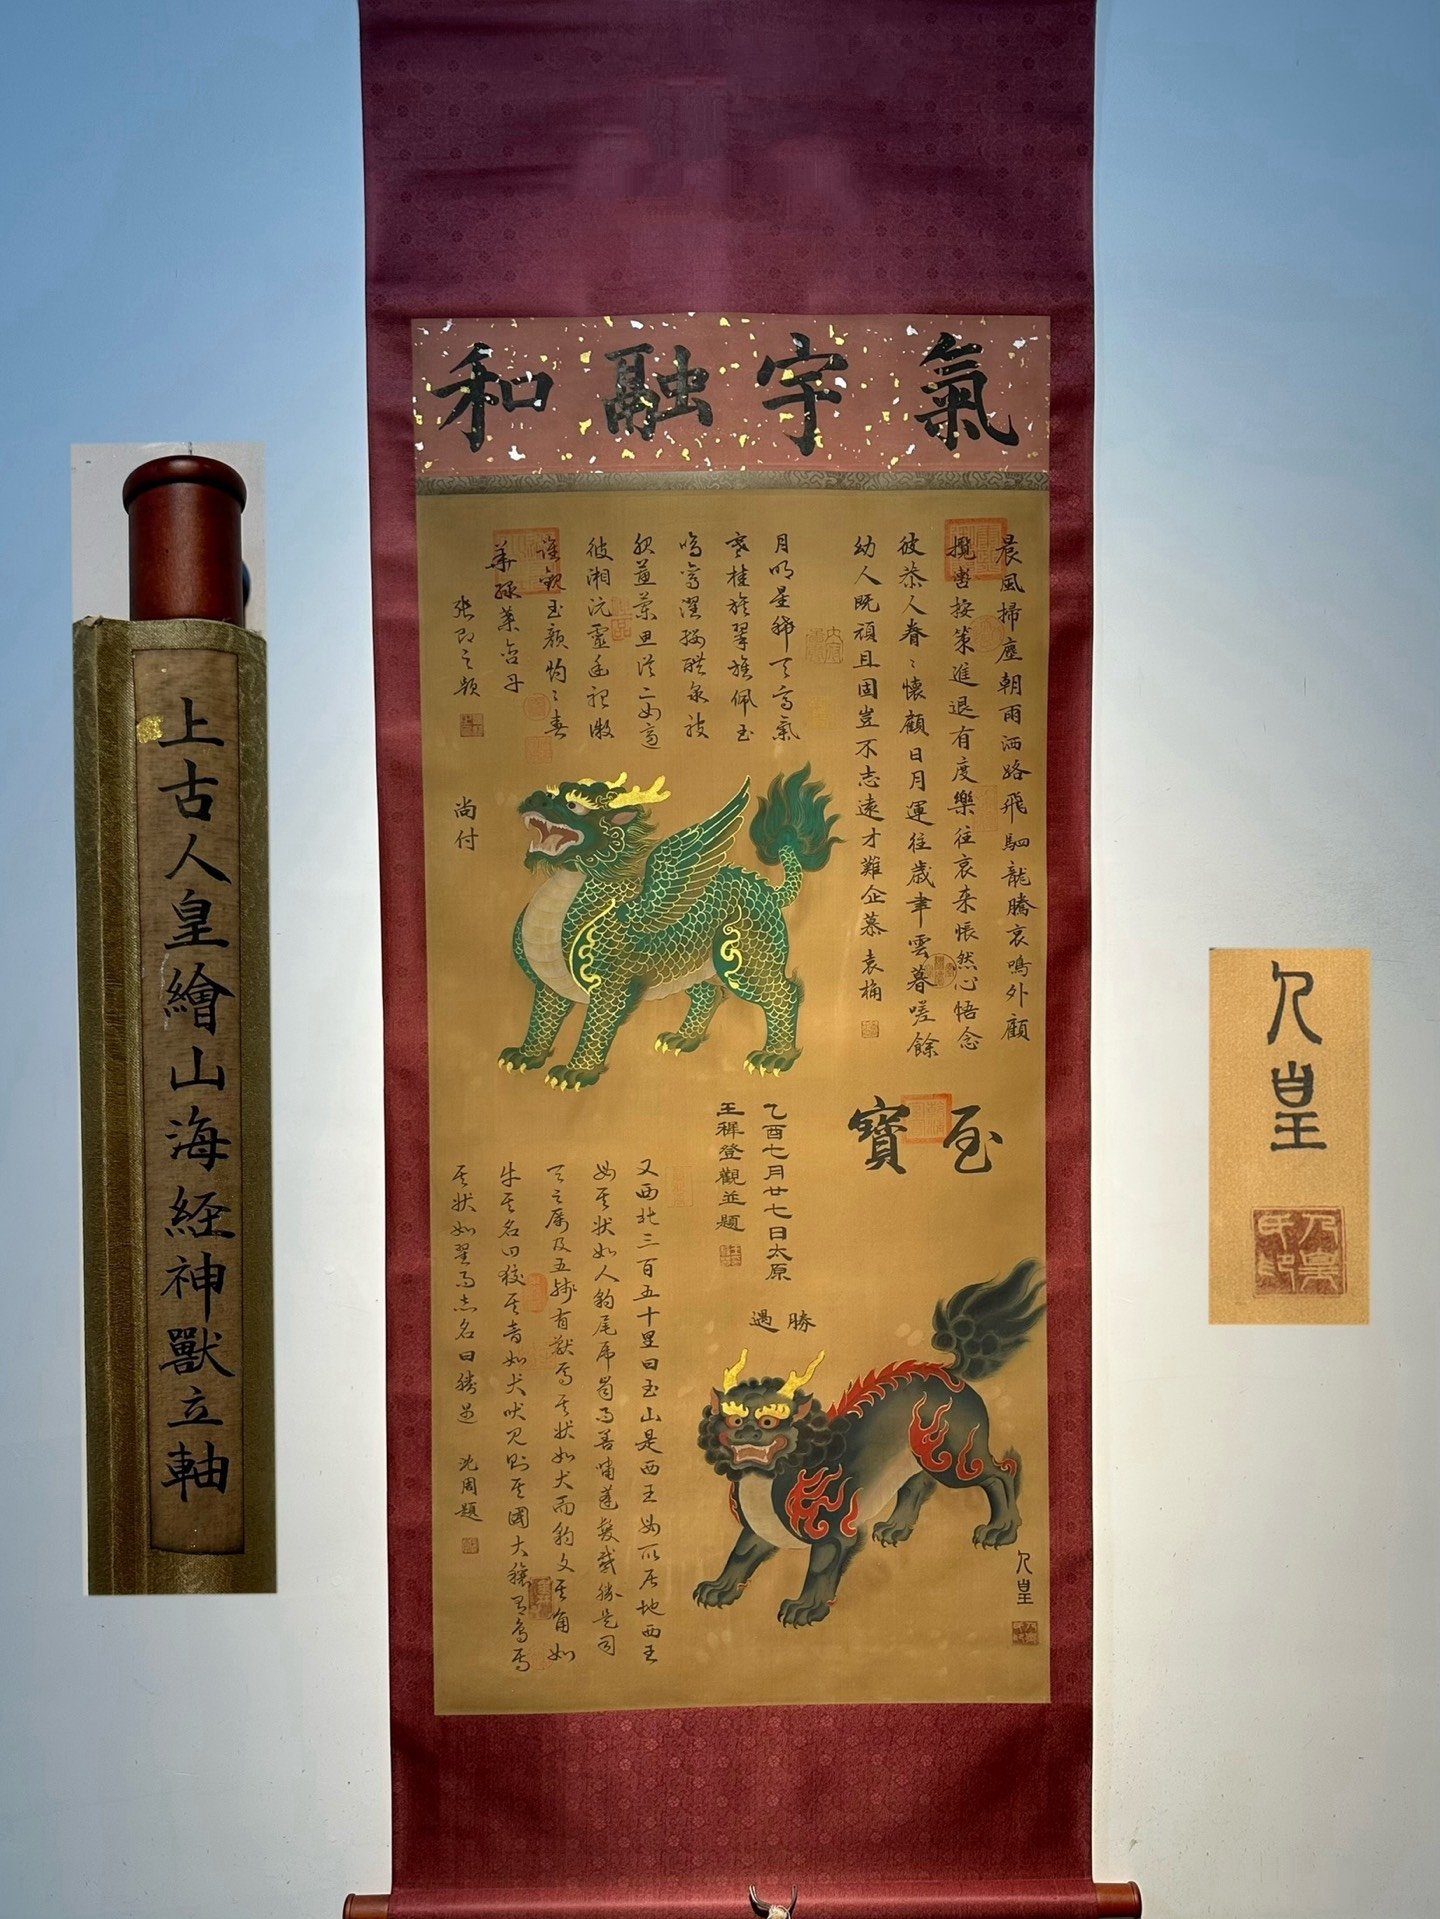 氣宇融和
晨風掃塵朝雨洒路飛駟龍騰哀鳴外顧
攬轡按策進退有度樂往哀來悵然心悟念
彼恭人眷々懷顧日月運往歲聿雲暮嗟餘
幼人既頑且固豈不志遠才難企慕 袁桷
月明星稀天高氣
寒桂旌翠旄佩玉
鳴鸞濯纓醴泉被
服蕙蘭思從二女適
彼湘沅靈幽視微
誰觀玉顏灼々春
華綠葉含丹
張即之題
尚付
至寶
乙酉七月廿七日太原
王穉登觀並題
勝遇
又西北三百五十里曰玉山是西王母所居地西王
母其狀如人豹尾虎齒而善嘯蓬髮戴勝是司
天之厲及五殘有獸焉其狀如犬而豹文其角如
牛其名曰狡其音如犬吠見則其國大穰有鳥焉
其狀如翟而赤名曰勝遇
沈周題
人皇
上古人皇繪山海経神獸立軸
人皇